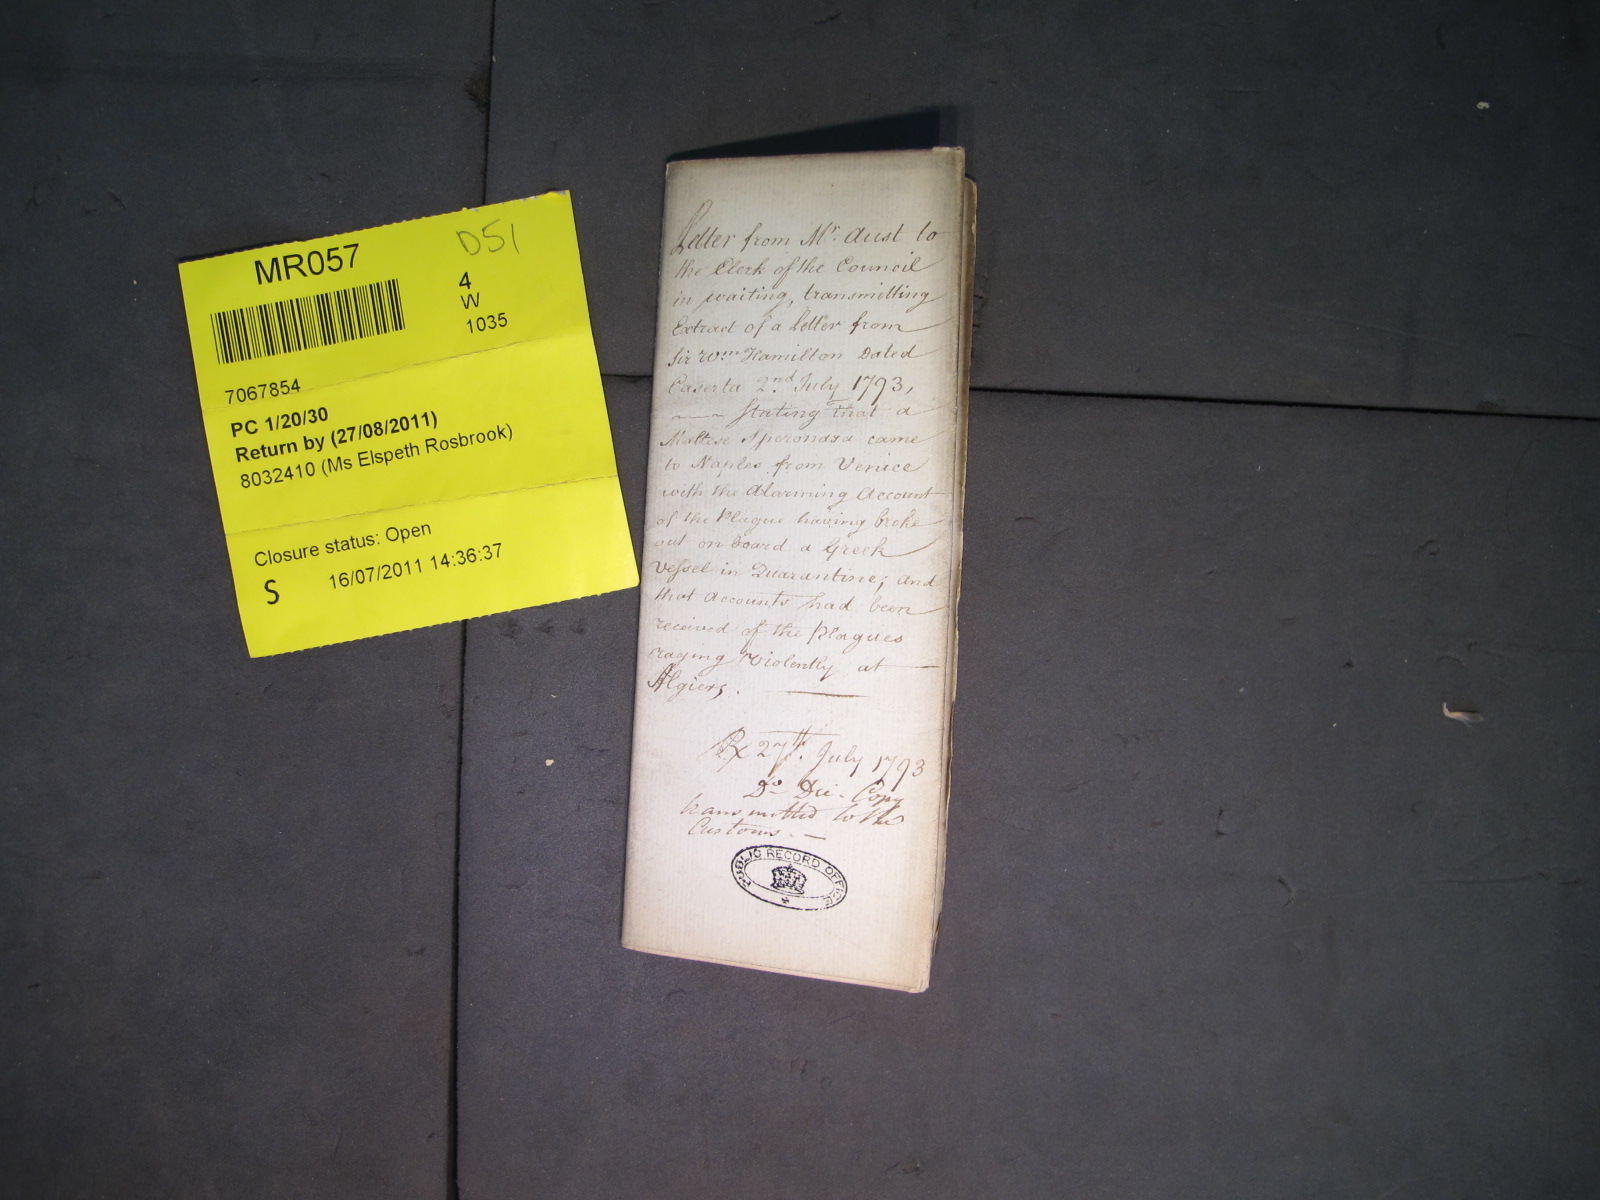 MR057
D51
4
W
1035
7067854
PC 1/20/30
Return by (27/08/2011)
8032410 (Ms Elspeth Rosbrook)
Closure status: Open
S 16/07/2011 14:36:37
Letter from Mr. Aust to
the Clerk of the Council
in waiting, transmitting
Extract of a Letter from
Sir Wm Hamilton Dated
Caserta 2nd July 1793,
—— Stating that a
Maltese Speronara came
to Naples from Venice
with the Alarming Account
of the Plague having broke
out on board a Greek
Vessel in Quarantine; and
that Accounts had been
received of the Plagues
raging Violently at
Algiers.
Rx 27th. July 1793
Do Die. Copy
transmitted to the
Customs. —
PUBLIC RECORD OFFICE